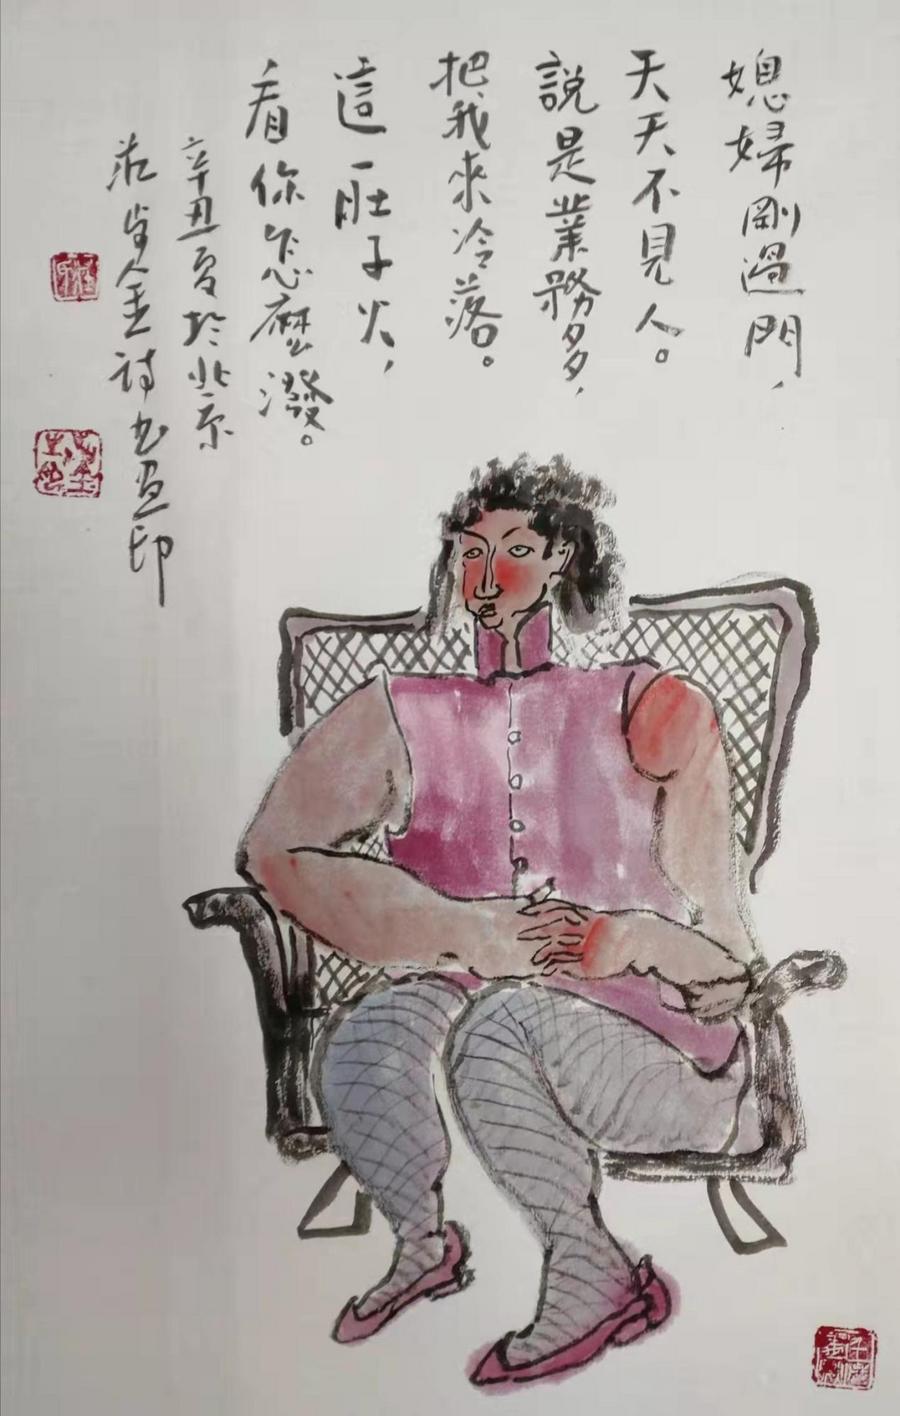 媳婦剛過門，
天天不見人。
説是業務多，
把我來冷落。
這一肚子火，
看你怎麽潑。
辛丑夏於北京
金詩書画印